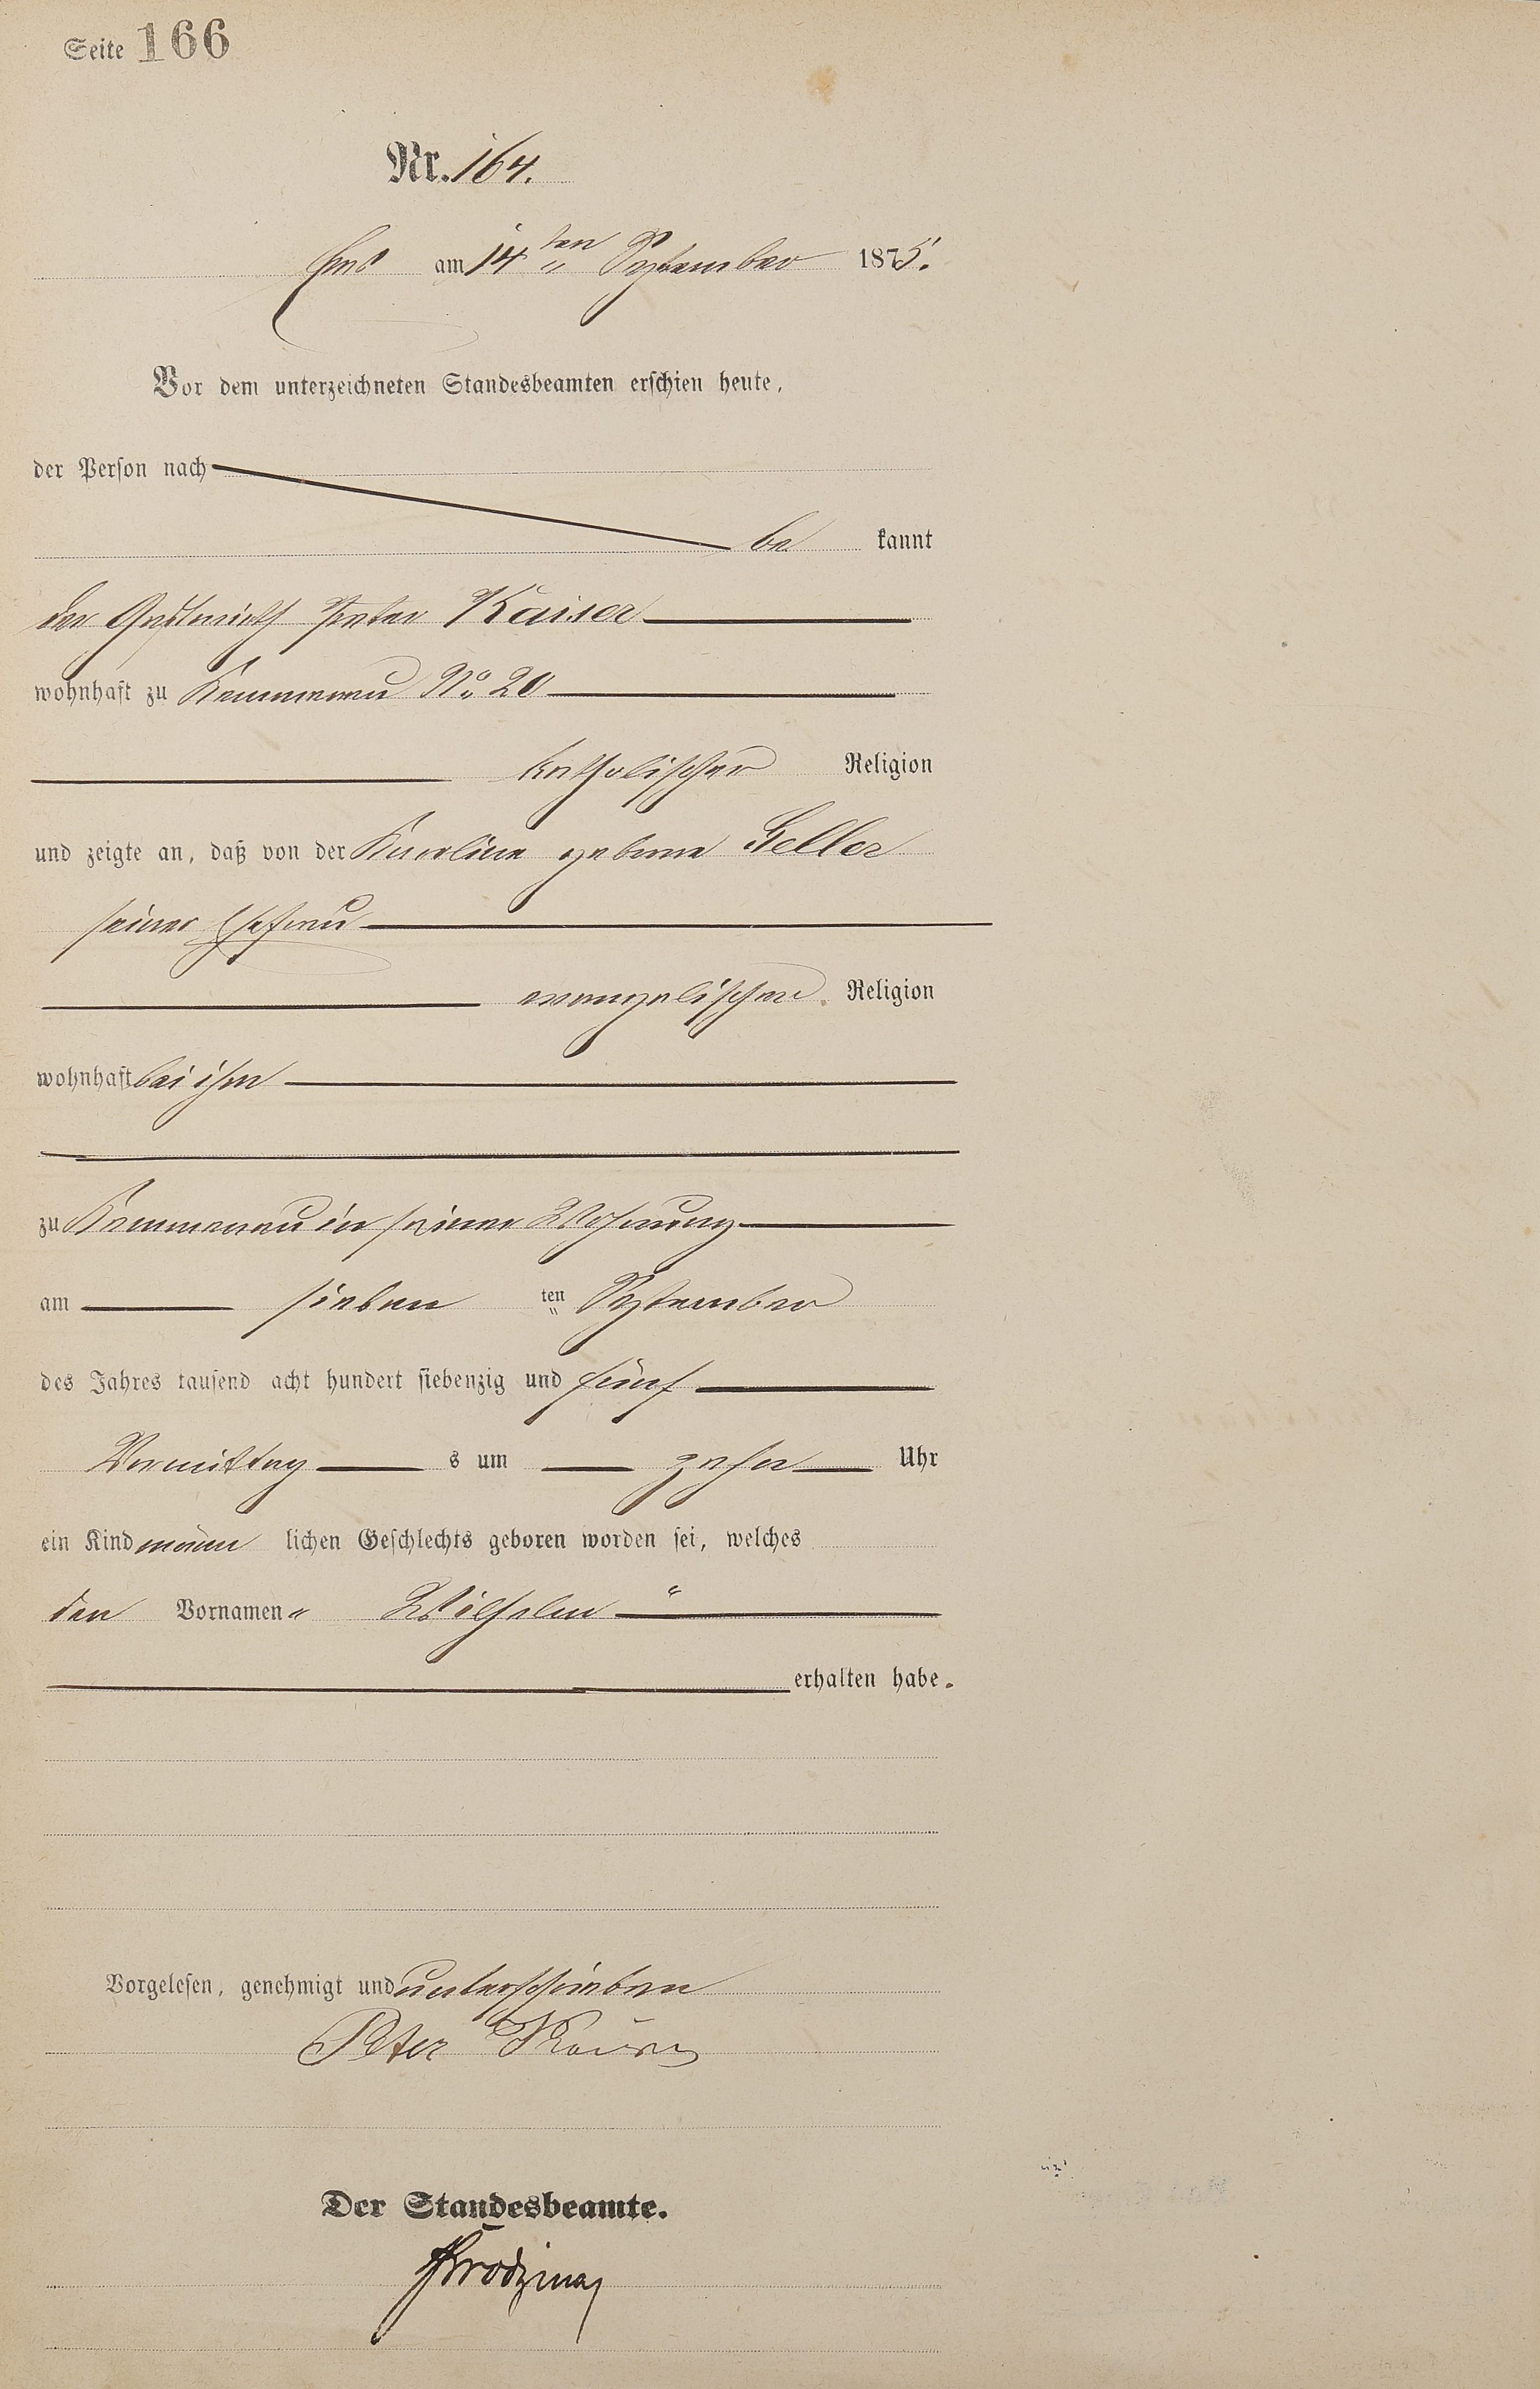 Seite 166
Nr. 164.
Ems am 14ten September 1875.
Vor dem unterzeichneten Standesbeamten erschien heute,
der Person nach
be kannt
der Gastwirth Peter Kaiser
wohnhaft zu Kemmenau No. 20
katholischer Religion
und zeigte an, daß von der Karoline geborne Geller
seiner Ehefrau
evangelischer Religion
wohnhaft bei ihm
zu Kemmenau in seiner Wohnung
am sieben ten September
des Jahres tausend acht hundert siebenzig und fünf
Vormittag s um zehn Uhr
ein Kind männ lichen Geschlechts geboren worden sei, welches
den Vornamen „ Wilhelm “
erhalten habe.
Vorgelesen, genehmigt und unterschrieben
Peter Kaiser
Der Standesbeamte.